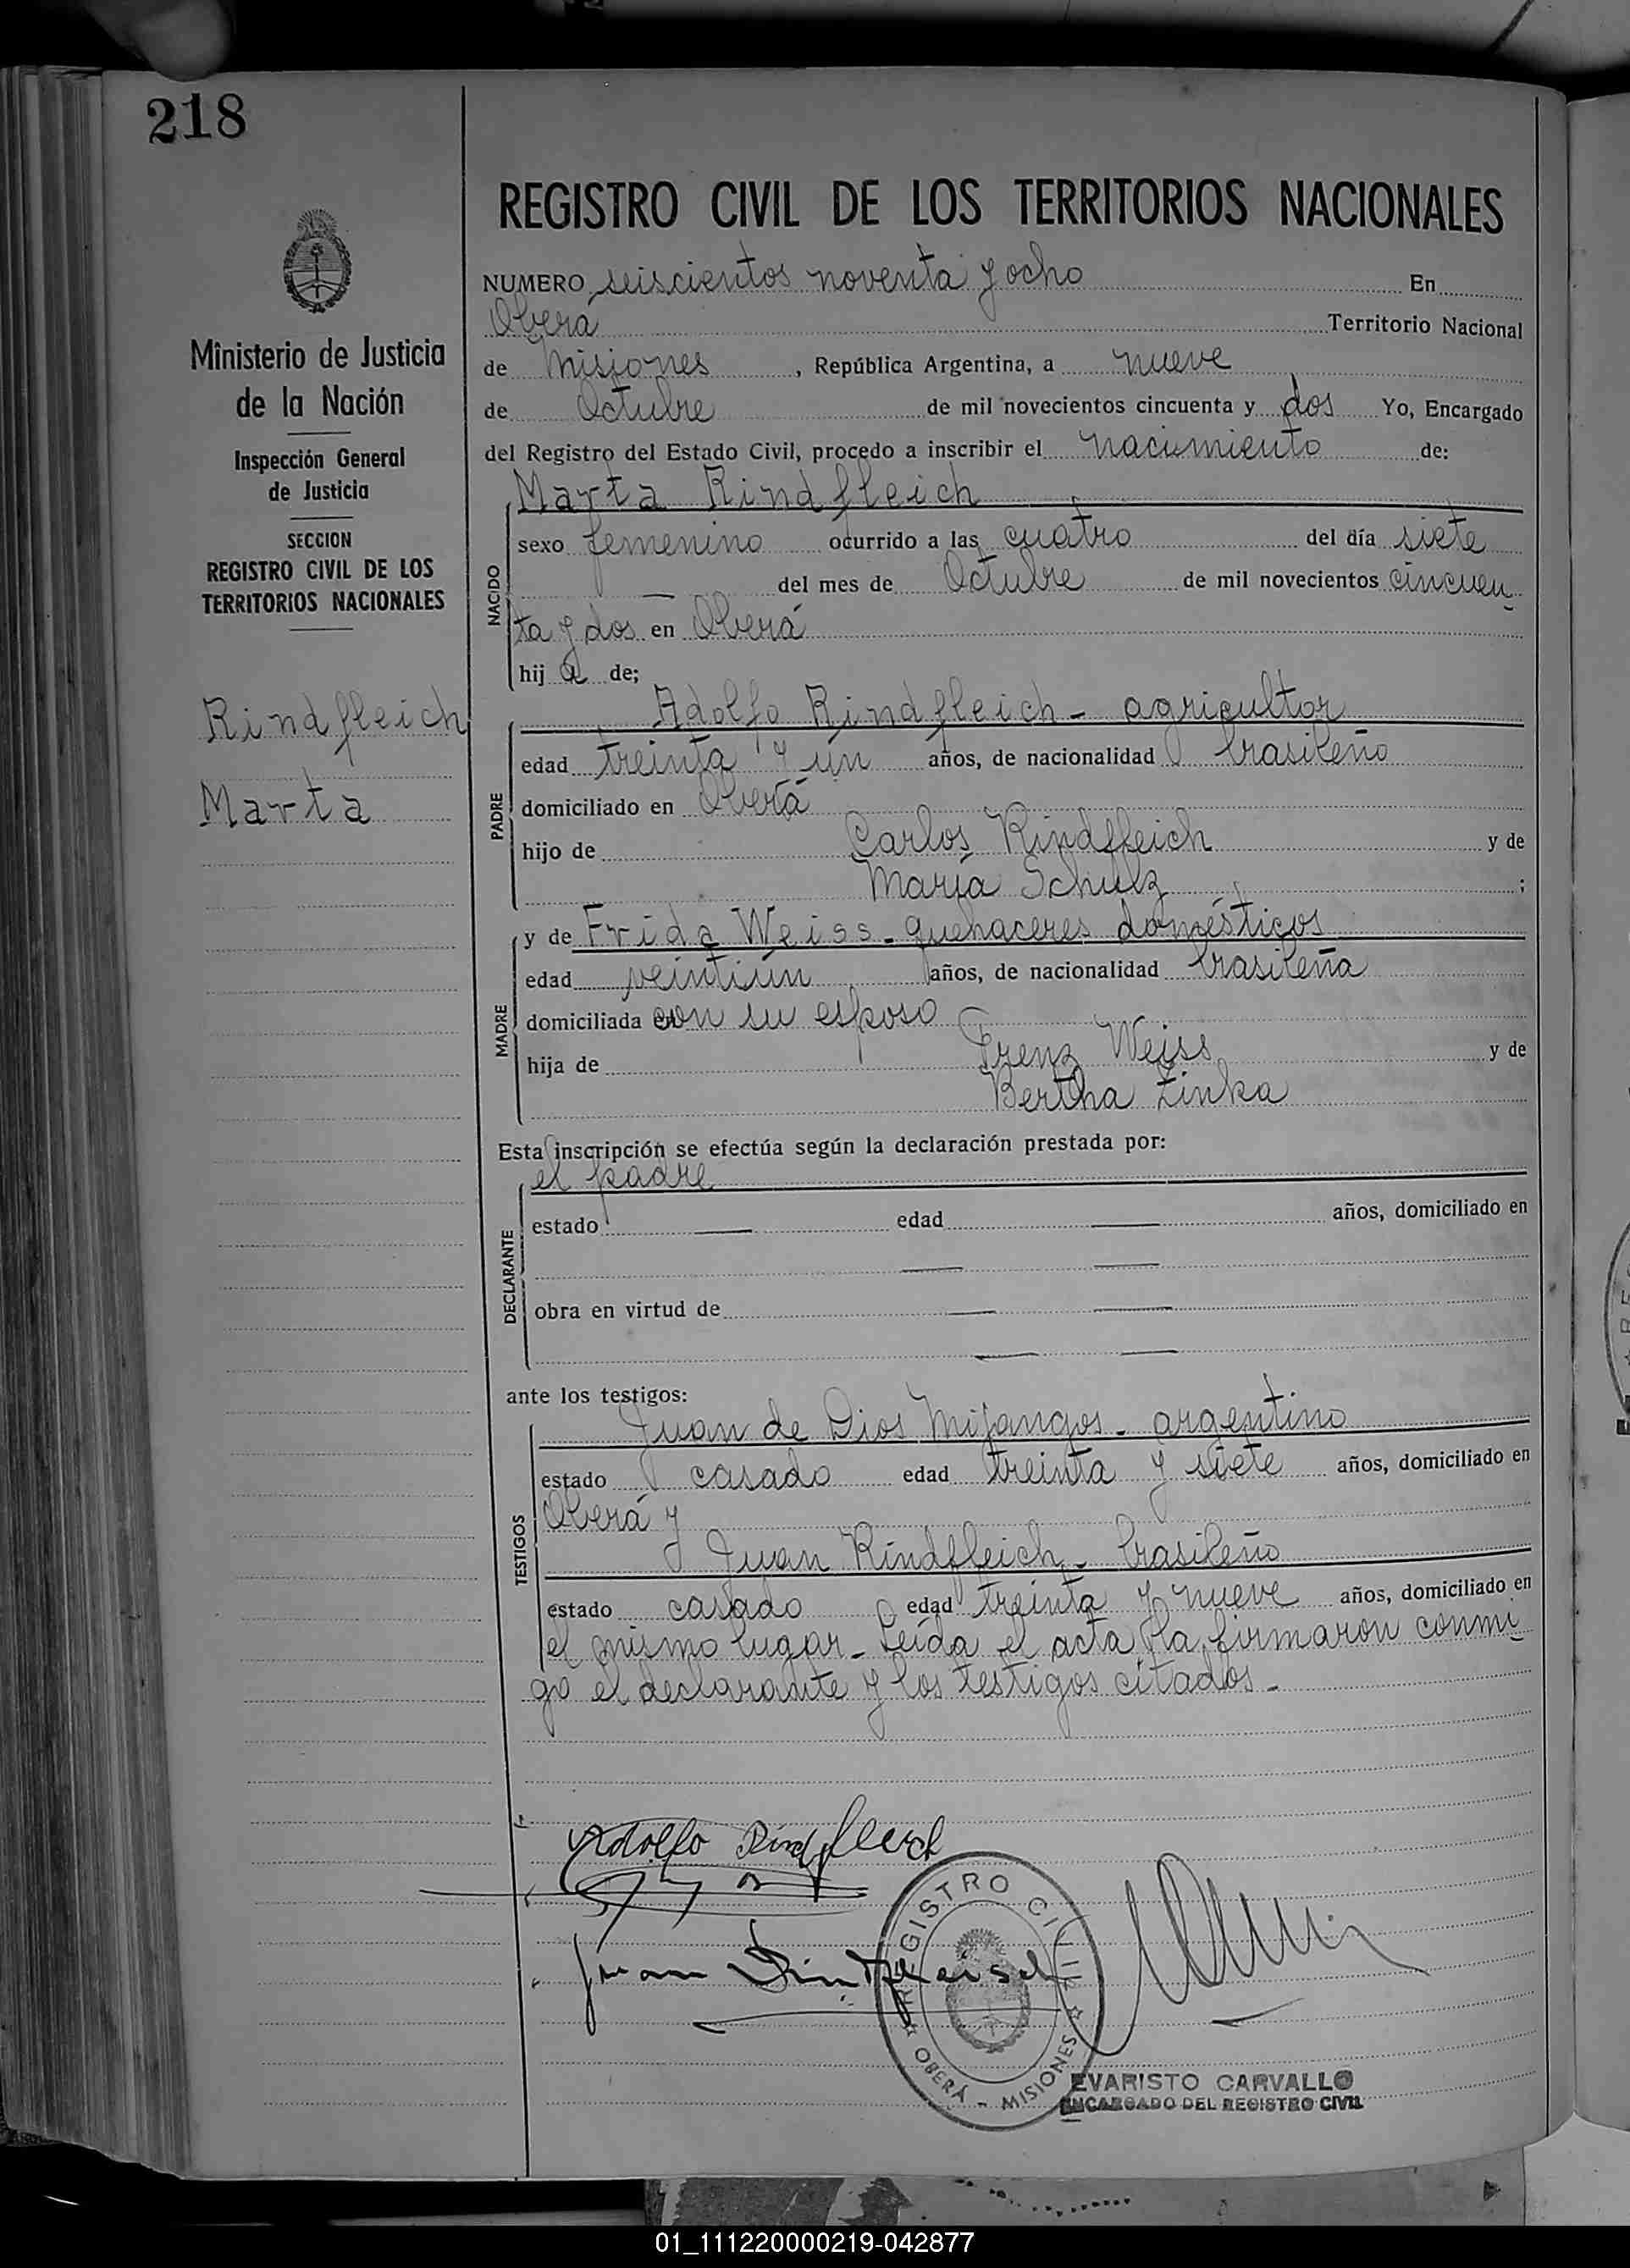 218
REGISTRO CIVIL DE LOS TERRITORIOS NACIONALES
NUMERO seiscientos noventa y ocho En
Oberá Territorio Nacional
de Misiones, República Argentina, a nueve
de Octubre de mil novecientos cincuenta y dos Yo, Encargado
del Registro del Estado Civil, procedo a inscribir el nacimiento de:
Marta Rindfleich
NACIDO
sexo femenino ocurrido a las cuatro del día siete
— del mes de Octubre de mil novecientos cincuen-
ta y dos en Oberá
hij a de;
Ministerio de Justicia
de la Nación
Inspección General
de Justicia
SECCION
REGISTRO CIVIL DE LOS
TERRITORIOS NACIONALES
Rindfleich
Marta
PADRE
Adolfo Rindfleich - agricultor
edad treinta y un años, de nacionalidad brasileño
domiciliado en Oberá
hijo de Carlos Rindfleich y de
María Schulz ;
MADRE
y de Frida Weiss - quehaceres domésticos
edad veintiún años, de nacionalidad brasileña
domiciliada con su esposo
hija de Frenz Weiss y de
Bertha Zinka
Esta inscripción se efectúa según la declaración prestada por:
el padre
DECLARANTE
estado — edad — años, domiciliado en
— —
obra en virtud de — —
— —
ante los testigos:
TESTIGOS
Juan de Dios Mijangos - argentino
estado casado edad treinta y siete años, domiciliado en
Oberá y
Juan Rindfleich - brasileño
estado casado edad treinta y nueve años, domiciliado en
el mismo lugar - Leída el acta la firmaron conmi-
go el declarante y los testigos citados -
Adolfo Rindfleich
Juan Rindfleisch
REGISTRO CIVIL
OBERÁ - MISIONES
EVARISTO CARVALLO
ENCARGADO DEL REGISTRO CIVIL
01_111220000219-042877